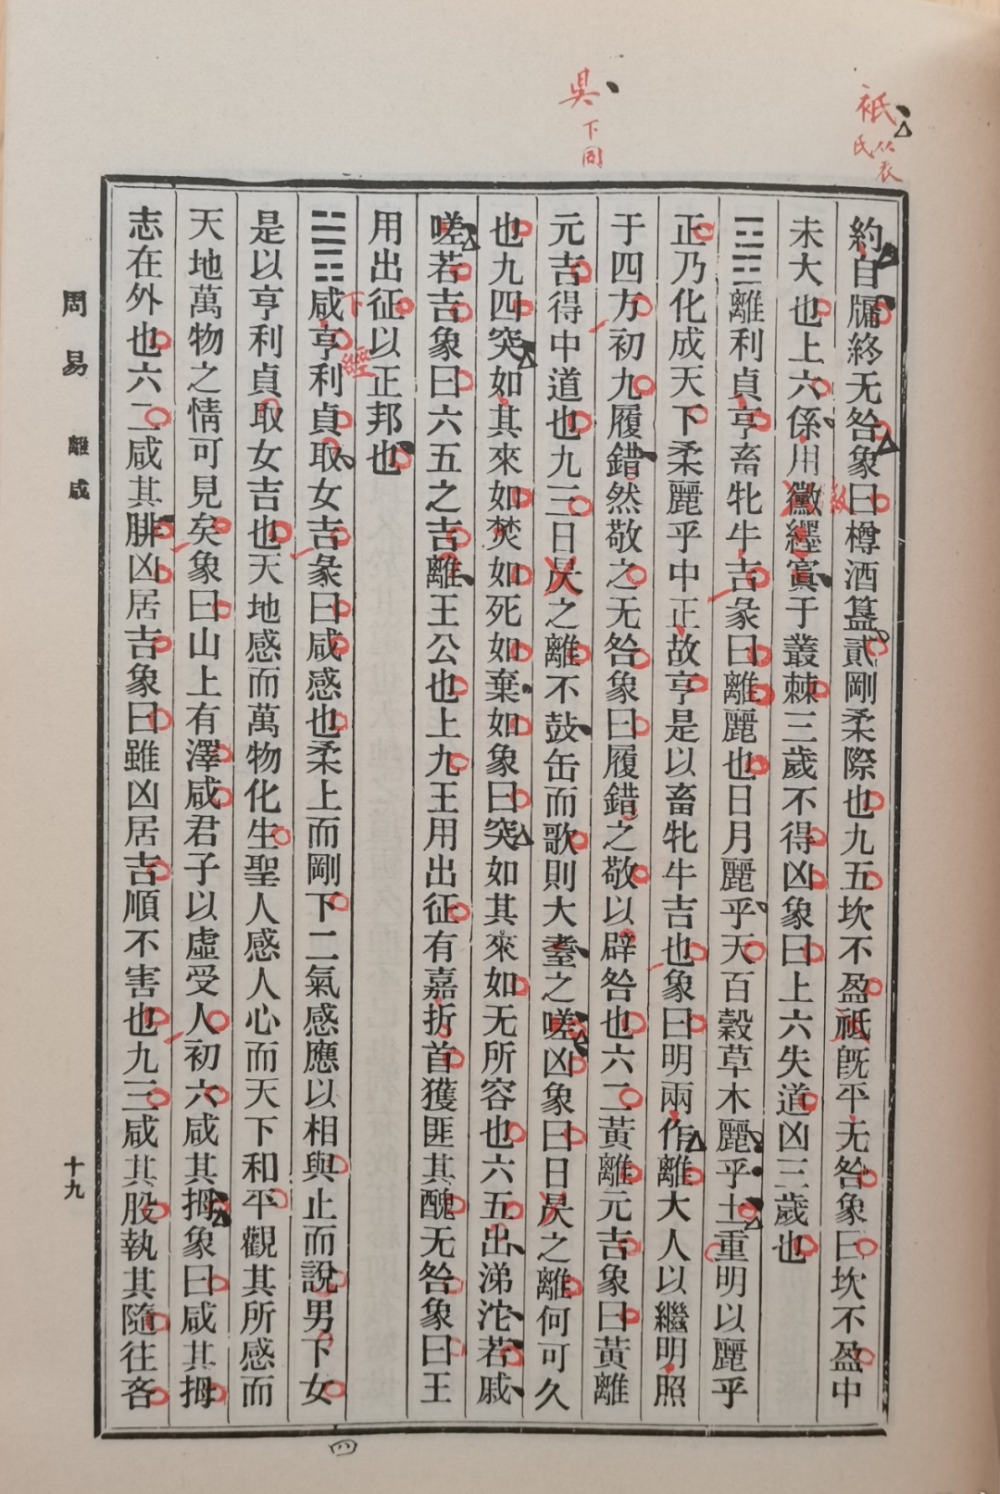 衹
从衣
氏
吳
下同
約自牖終无咎象曰樽酒簋貳剛柔際也九五坎不盈祗旣平无咎象曰坎不盈中
未大也上六係用黴纆寘于叢棘三歲不得凶象曰上六失道凶三歲也
䷝離利貞亨畜牝牛吉彖曰離麗也日月麗乎天百穀草木麗乎土重明以麗乎
正乃化成天下柔麗乎中正故亨是以畜牝牛吉也象曰明兩作離大人以繼明照
于四方初九履錯然敬之无咎象曰履錯之敬以辟咎也六二黃離元吉象曰黃離
元吉得中道也九三日昃之離不鼓缶而歌則大耋之嗟凶象曰日昃之離何可久
也九四突如其來如焚如死如棄如象曰突如其來如无所容也六五出涕沱若戚
嗟若吉象曰六五之吉離王公也上九王用出征有嘉折首獲匪其醜无咎象曰王
用出征以正邦也
下經
䷞咸亨利貞取女吉彖曰咸感也柔上而剛下二氣感應以相與止而說男下女
是以亨利貞取女吉也天地感而萬物化生聖人感人心而天下和平觀其所感而
天地萬物之情可見矣象曰山上有澤咸君子以虛受人初六咸其拇象曰咸其拇
志在外也六二咸其腓凶居吉象曰雖凶居吉順不害也九三咸其股執其隨往吝
周易
離咸
十九
四